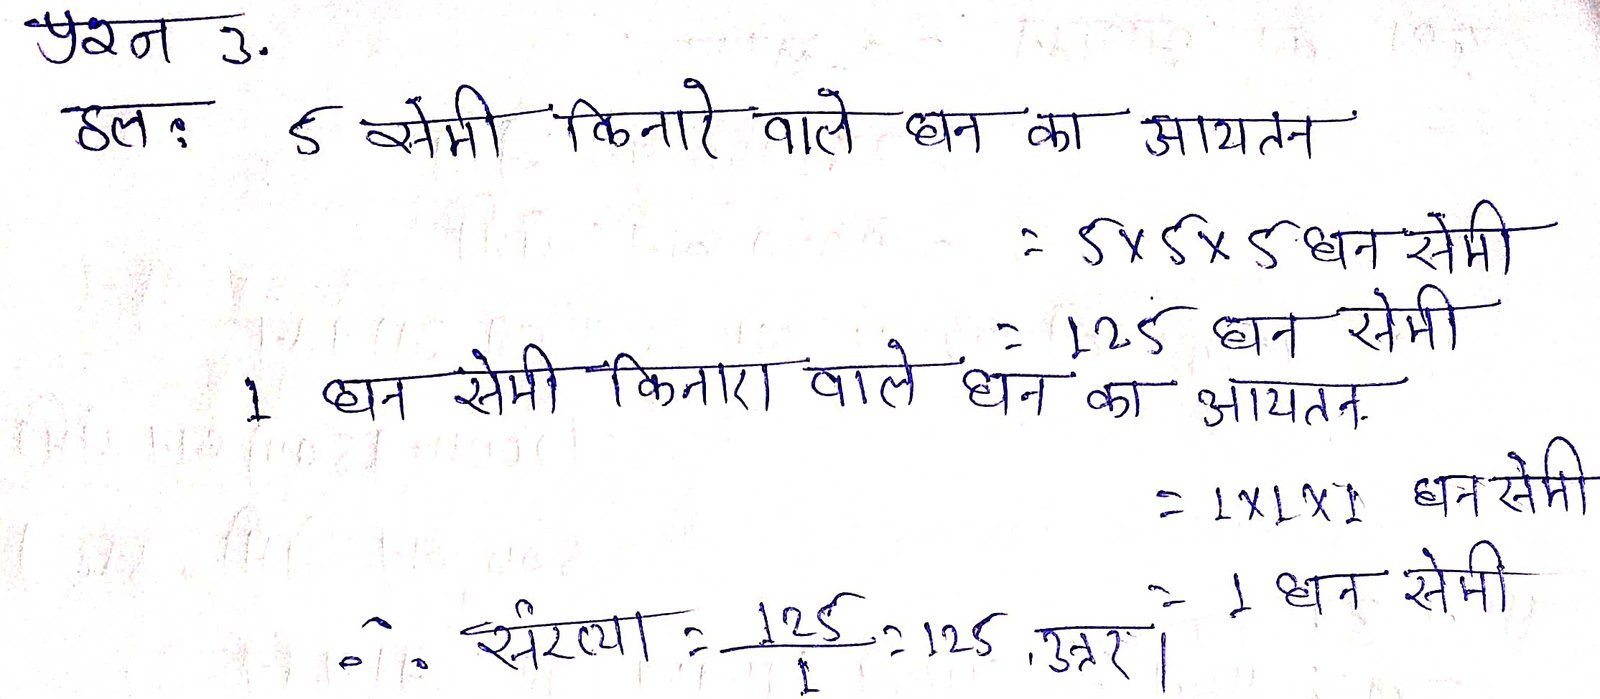 प्रश्न 3.
हल: 5 सेमी किनारे वाले घन का आयतन
= 5 × 5 × 5 घन सेमी
= 125 घन सेमी
1 घन सेमी किनारा वाले घन का आयतन
= 1 × 1 × 1 घन सेमी
= 1 घन सेमी
∴ संख्या = 125/1 = 125 . उत्तर।